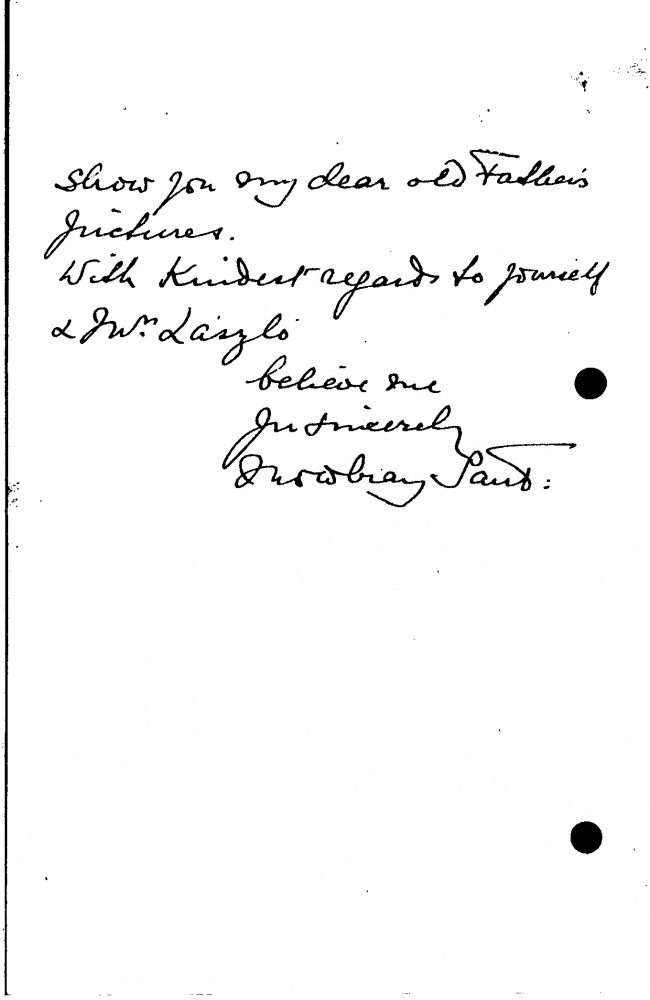 show you my dear old Father's
pictures.
With Kindest regards to yourself
& Mrs. László
believe me
Yrs sincerely
Mowbray Sant: